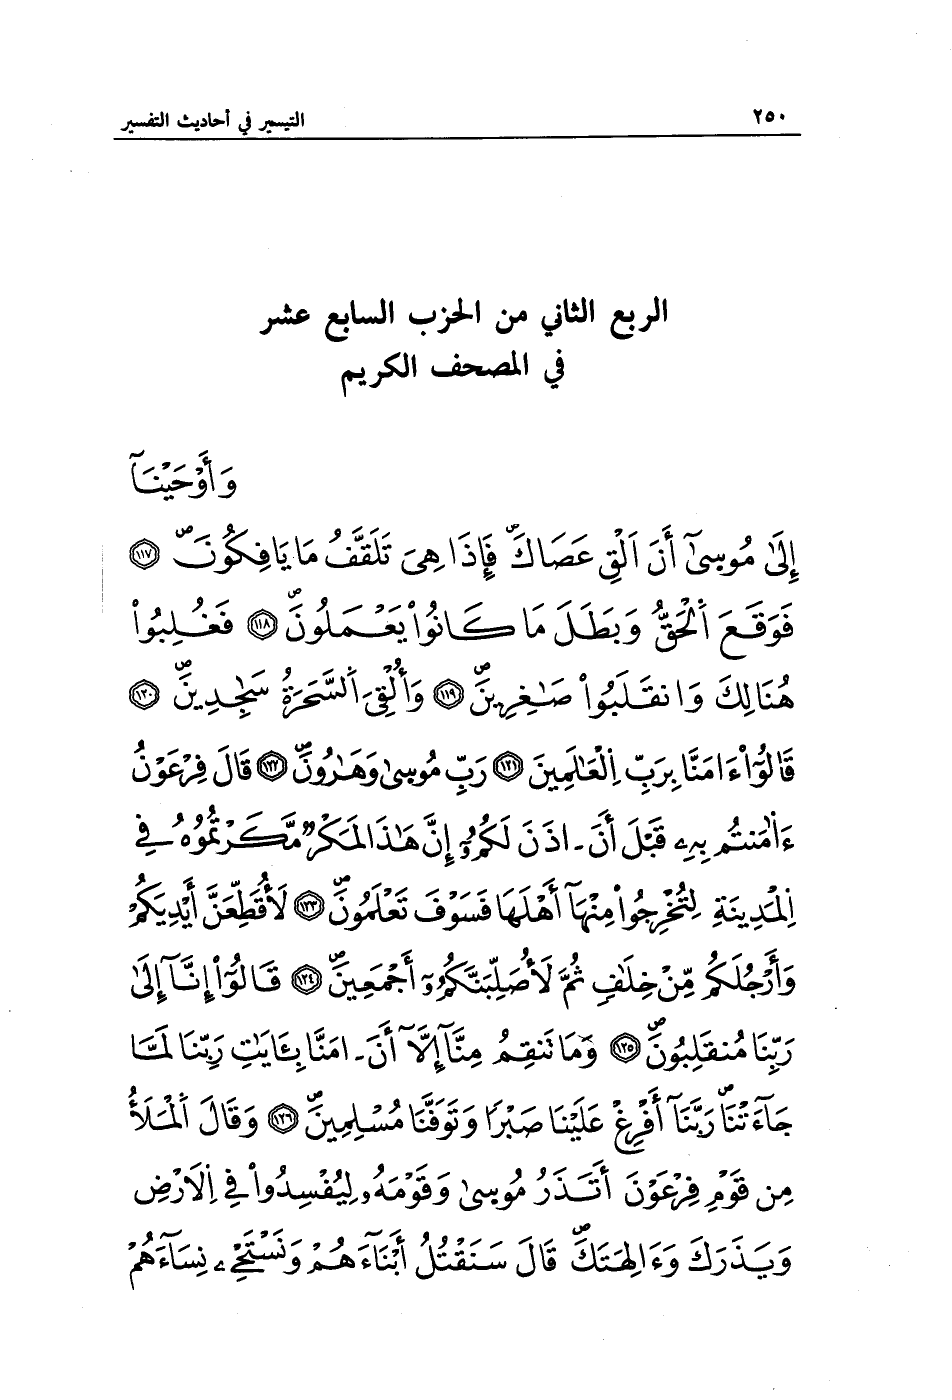 ٢٥٠ التيسير في أحاديث التفسير
الربع الثاني من الحزب السابع عشر
في المصحف الكريم
وَأَوْحَيْنَآ
إِلَىٰ مُوسىٰٓ أَنَ اَلْقِ عَصَاكَۖ فَإِذَا هِىَ تَلَقَّفُ مَا يَافِكُونَۖ ١١٧
فَوَقَعَ اَ۬لْحَقُّ وَبَطَلَ مَا كَانُواْ يَعْمَلُونَۖ ١١٨ فَغُلِبُواْ
هُنَالِكَ وَانقَلَبُواْ صَٰغِرِينَۖ ١١٩ وَأُلْقِىَ اَ۬لسَّحَرَةُ سَٰجِدِينَۖ ١٢٠
قَالُوٓاْ ءَامَنَّا بِرَبِّ اِ۬لْعَٰلَمِينَ ١٢١ رَبِّ مُوسىٰ وَهَٰرُونَۖ ١٢٢ قَالَ فِرْعَوْنُ
ءَاٰمَنتُم بِهِۦ قَبْلَ أَنَ ـ اذَنَ لَكُمُۥٓ إِنَّ هَٰذَا لَمَكْرٞ مَّكَرْتُمُوهُ فِے
اِ۬لْمَدِينَةِ لِتُخْرِجُواْ مِنْهَآ أَهْلَهَا فَسَوْفَ تَعْلَمُونَۖ ١٢٣ لَأُقَطِّعَنَّ أَيْدِيَكُمْ
وَأَرْجُلَكُم مِّنْ خِلَٰفٖ ثُمَّ لَأُصَلِّبَنَّكُمُۥٓ أَجْمَعِينَۖ ١٢٤ قَالُوٓاْ إِنَّآ إِلَىٰ
رَبِّنَا مُنقَلِبُونَۖ ١٢٥ وَمَا تَنقِمُ مِنَّآ إِلَّآ أَنَ ـ امَنَّا بِـَٔايَٰتِ رَبِّنَا لَمَّا
جَآءَتْنَاۖ رَبَّنَآ أَفْرِغْ عَلَيْنَا صَبْرٗا وَتَوَفَّنَا مُسْلِمِينَۖ ١٢٦ وَقَالَ اَ۬لْمَلَأُ
مِن قَوْمِ فِرْعَوْنَ أَتَذَرُ مُوسىٰ وَقَوْمَهُۥ لِيُفْسِدُواْ فِے اِ۬لَارْضِ
وَيَذَرَكَ وَءَالِهَتَكَۖ قَالَ سَنَقْتُلُ أَبْنَآءَهُمْ وَنَسْتَحْيِۦ نِسَآءَهُمْ